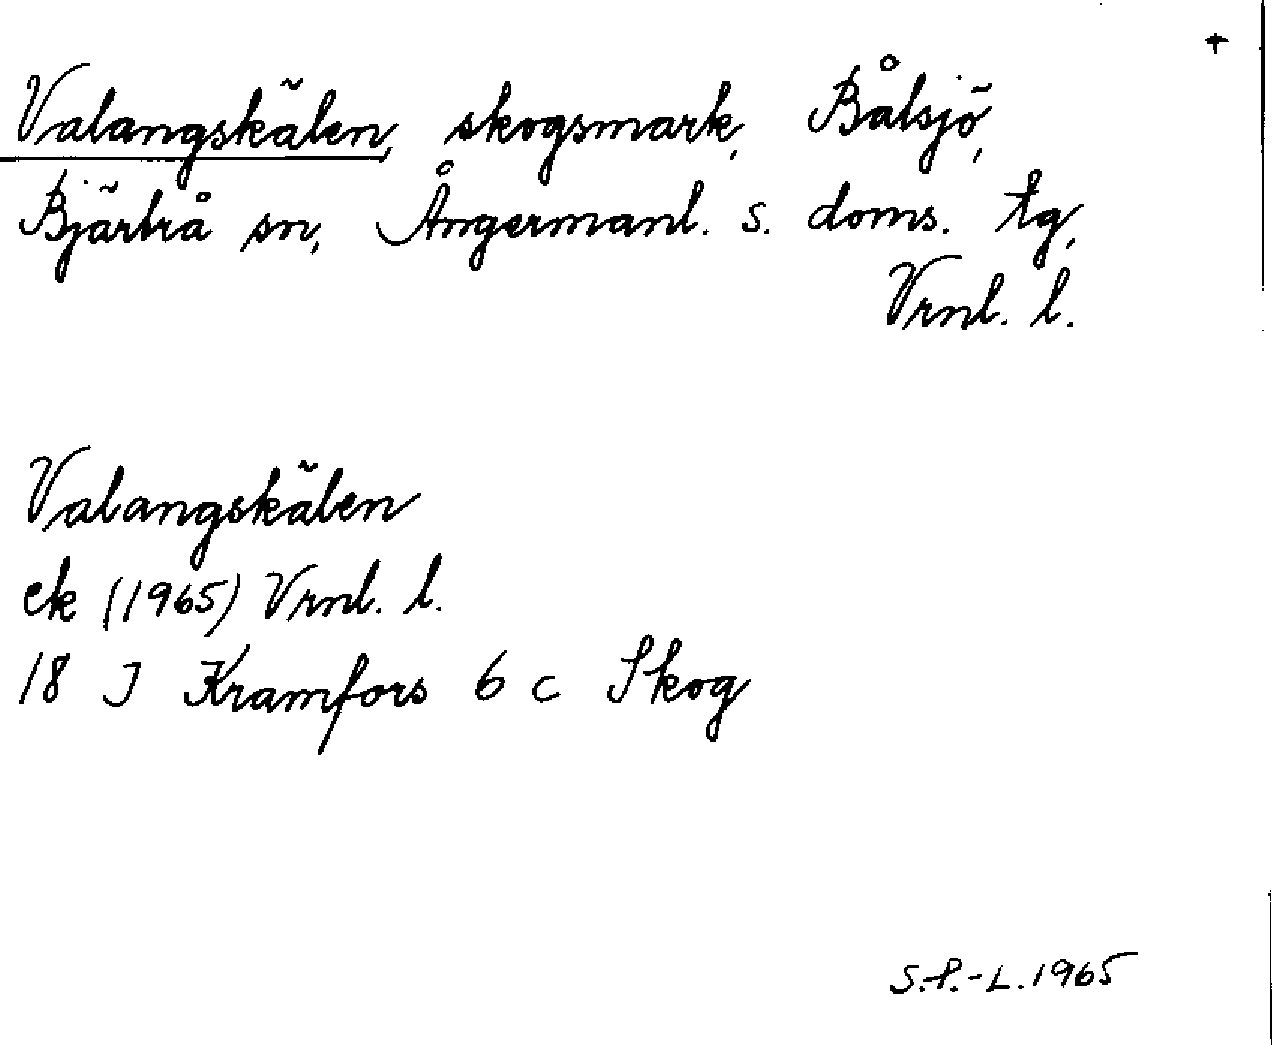 +
Valangskälen, skogsmark, Bålsjö,
Bjärtrå sn, Ångermanl. s. doms. tg,
Vrnl. l.
Valangskälen
ek (1965) Vrnl. l.
18 J Kramfors 6 c Skog
S.P.-L. 1965